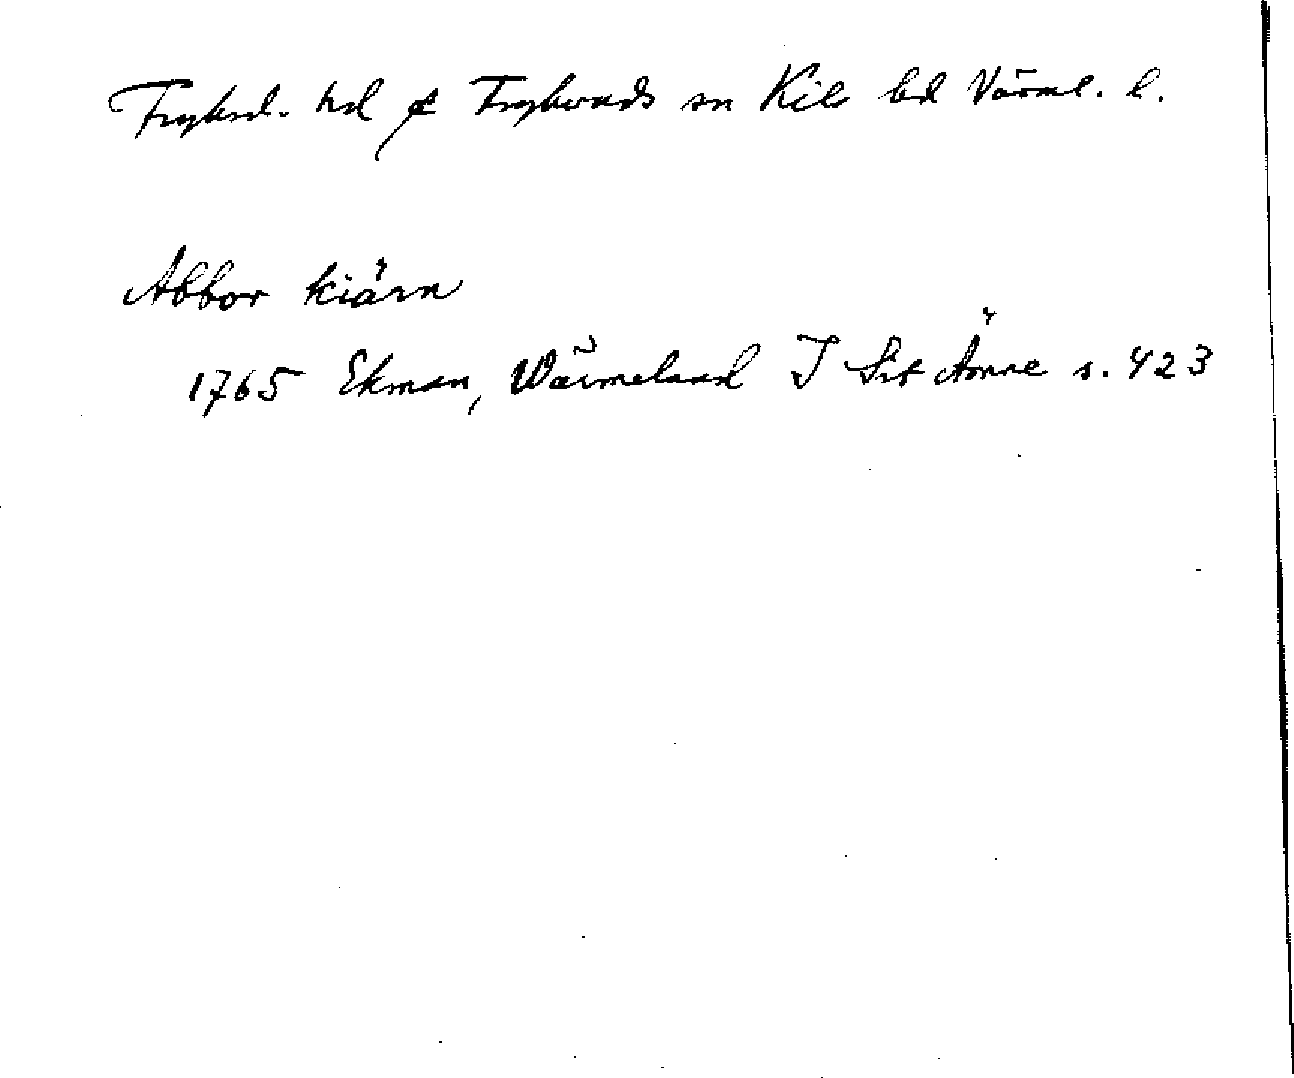 Fryksd. hd f Frykeruds sn Kils hd Värml. l.
Abbor kiärn
1765 Ekman, Wärmeland I Sit Ämne s. 423